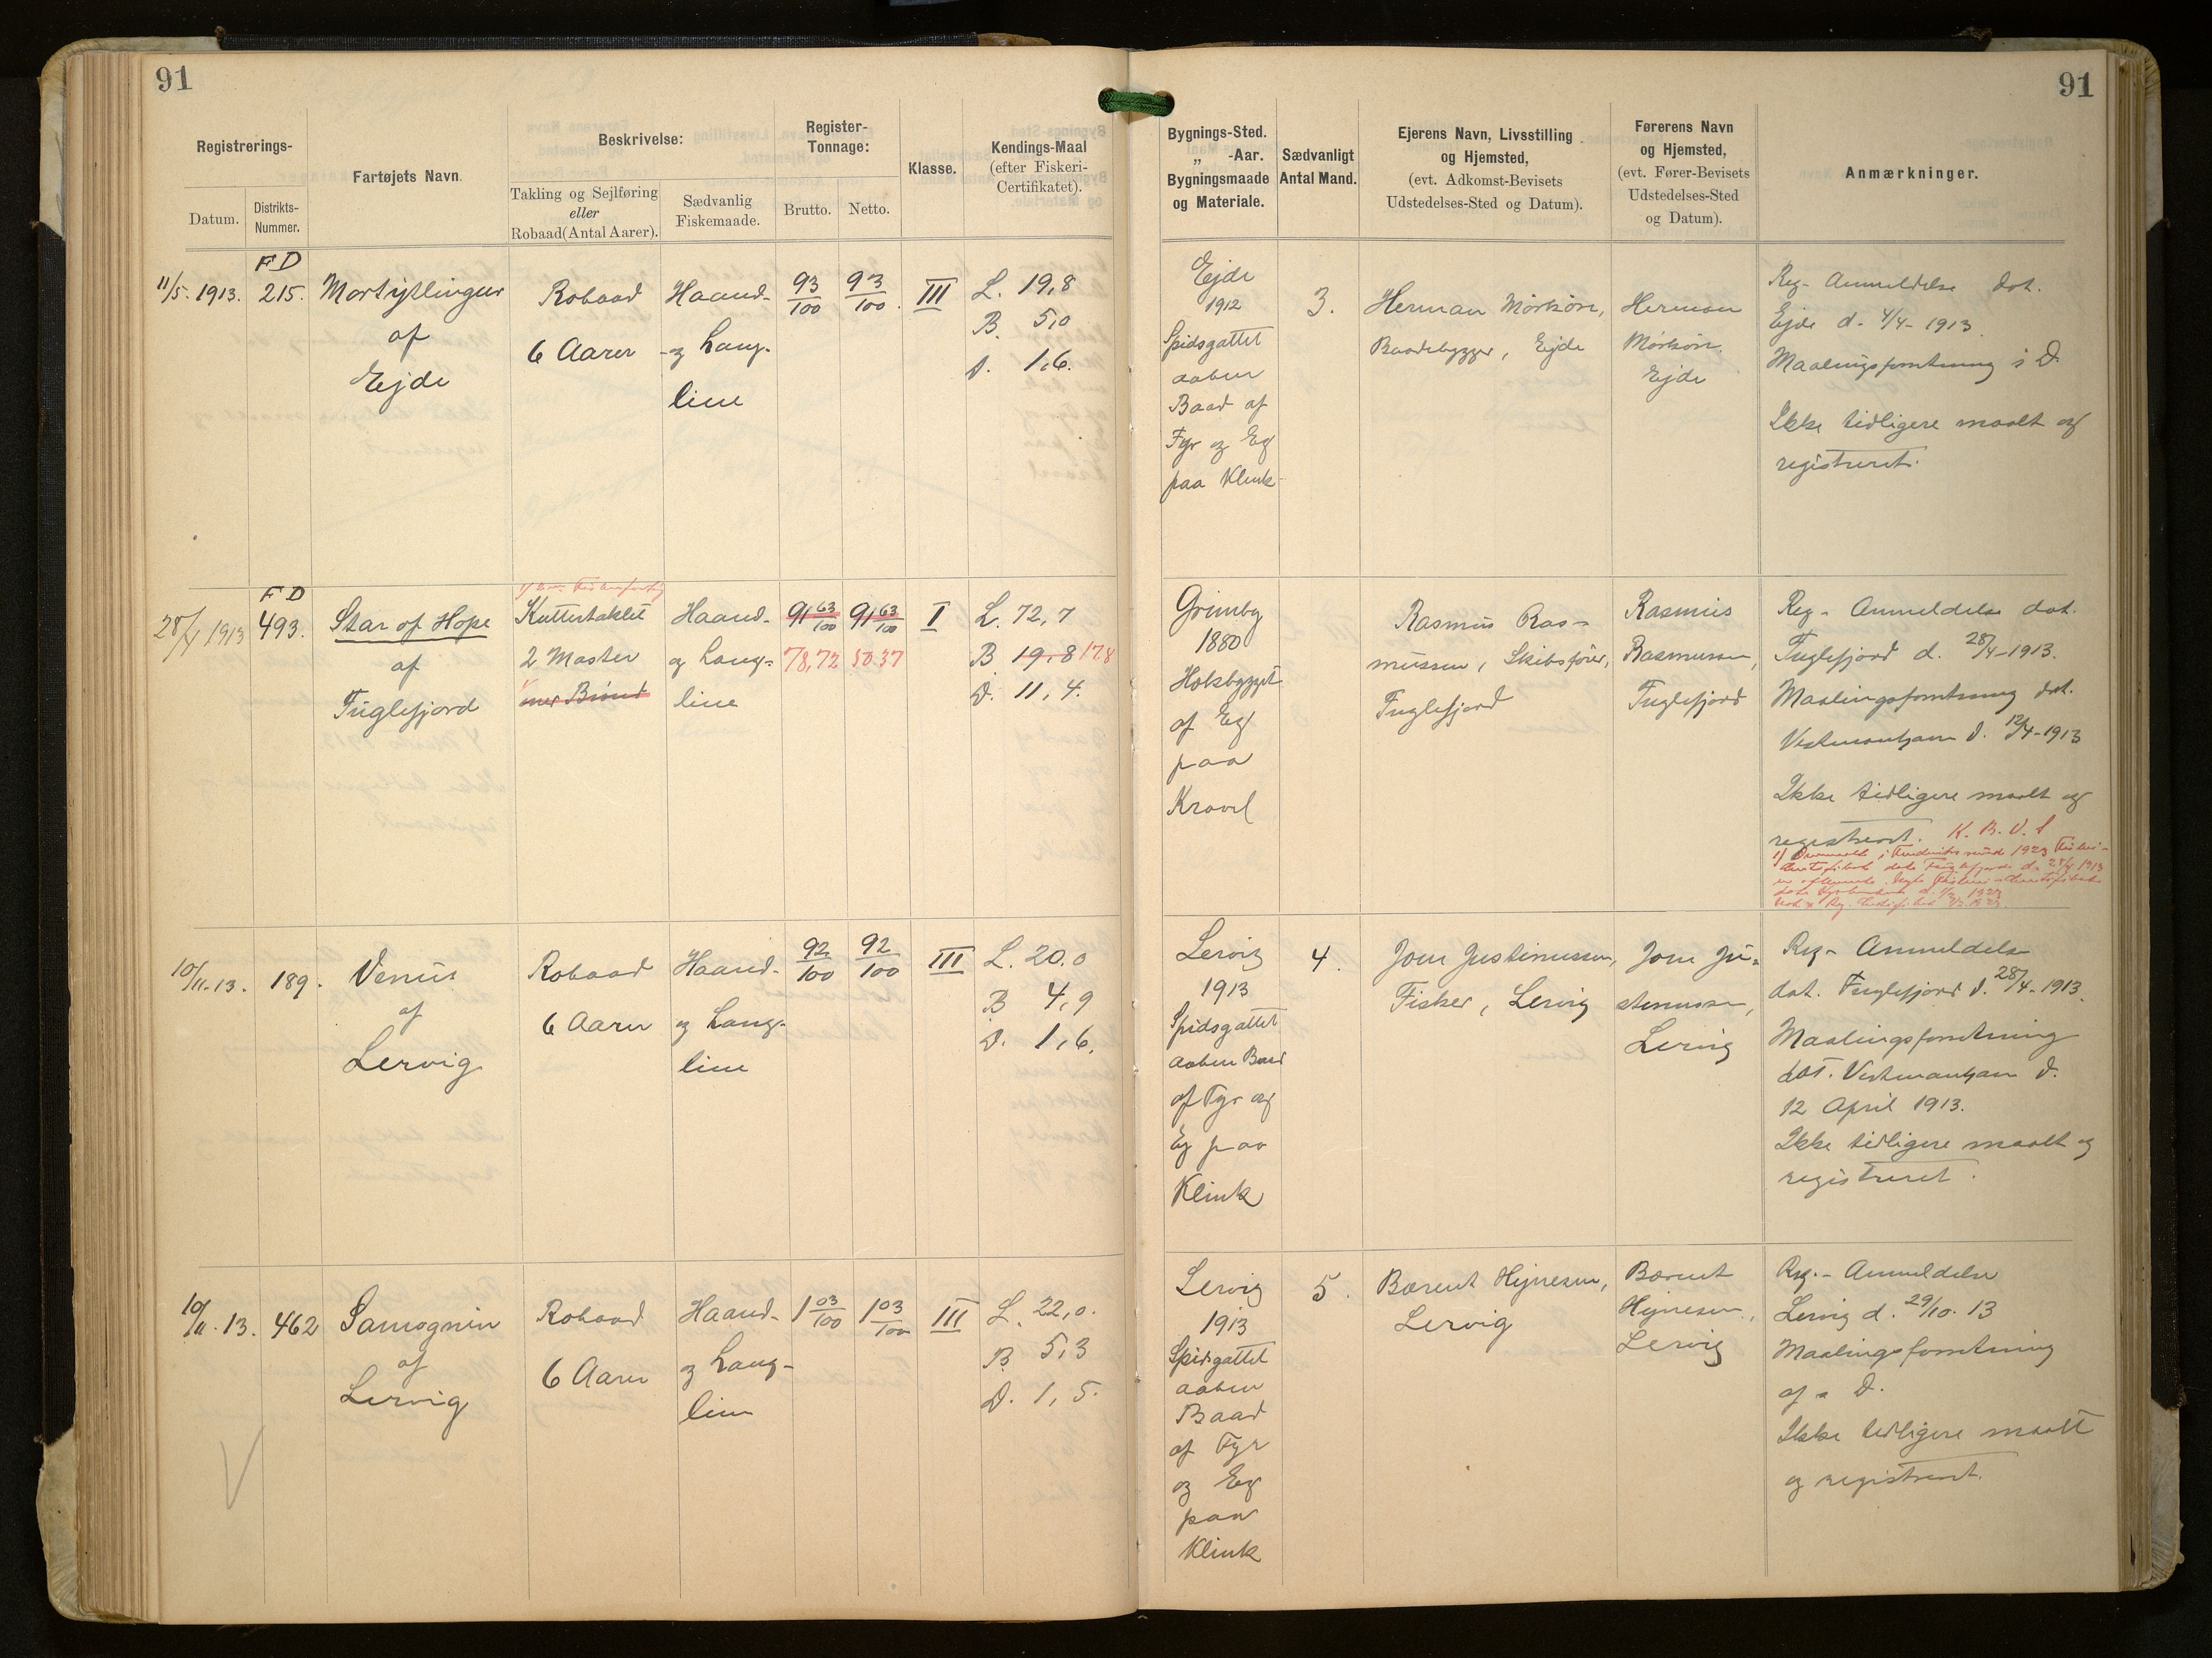 91
91
Registrerings-
Datum.
Distrikts-
Nummer.
Fartøjets Navn.
Beskrivelse:
Takling og Sejlføring
eller
Robaad(Antal Aarer).
Sædvanlig
Fiskemaade.
Register-
Tonnage:
Brutto.
Netto.
Klasse.
Kendings-Maal
(efter Fiskeri-
Certifikatet).
Bygnings-Sted.
„ -Aar.
Bygningsmaade
og Materiale.
Sædvanligt
Antal Mand.
Ejerens Navn, Livsstilling
og Hjemsted,
(evt. Adkomst-Bevisets
Udstedelses-Sted og Datum).
Førerens Navn
og Hjemsted,
(evt. Fører-Bevisets
Udstedelses-Sted
og Datum).
Anmærkninger.
11/5. 1913.
FD
215.
af
Ejde
Robaad
6 Aarer
Haand-
og Lang-
line
93/100
93/100.
III
L. 19,8
B. 5,0
D. 1,6.
Ejde
1912
Spidsgattet
aaben
Baad af
Fyr og Eg
paa Klink
3.
Herman Mørkøre,
Baadebygger, Ejde
Herman
Mørkøre.
Ejde
Reg- Anmeldelse dat.
Ejde d. 4/4- 1913.
Maalingsforretning s. D.
Ikke tidligere maalt og
registreret.
28/4 1913
FD
493.
Star of Hope
af
Fuglefjord
Kuttertaklet
2 Master
Haand-
og Lang-
line
91 63/100
91 63/100
78,72
50.37
I
L. 72,7
B 19,8 17.8
D. 11,4.
Grimsby
1880
Høkbygget
af Eg
paa
Kravel
Rasmus Ras-
mussen, Skibsfører,
Fuglefjord
Rasmus
Rasmussen,
Fuglefjord
Reg- Anmeldelse dat.
Fuglefjord d. 28/4-1913.
Maalingsforretning dat.
Vestmanhavn d. 12/4-1913
Ikke tidligere maalt og
registreret. K. B. V. S
10/11. 13.
189.
Venus
af
Lervig
Robaad
6 Aarer
Haand-
og Lang-
line
92/100
92/100
III
L. 20.0
B 4,9
D. 1,6.
Lervig
1913
Spidsgattet
aaben Baad
af Fyr og
Eg paa
Klink
4.
Joen Justinussen,
Fisker, Lervig
Joen Ju-
stinussen,
Lervig
Reg- Anmeldelse
dat. Fuglefjord d. 28/4-1913.
Maalingsforretning
dat. Vestmanhavn d.
12 April 1913.
Ikke tidligere maalt og
registreret.
10/11. 13.
462
af
Lervig
Robaad
6 Aarer
Haand-
og Lang-
line
1 03/100
1 03/100
III
L. 22,0.
B 5,3
D. 1,5.
Lervig
1913
Spidsgattet
aaben
Baad
af Fyr
og Eg
paa
Klink
5.
Bærent Hejnesen,
Lervig
Bærent
Hejnesen,
Lervig
Reg.- Anmeldelse
Lervig d. 29/10. 13
Maalingsforretning
af s. D.
Ikke tidligere maalt
og registreret.